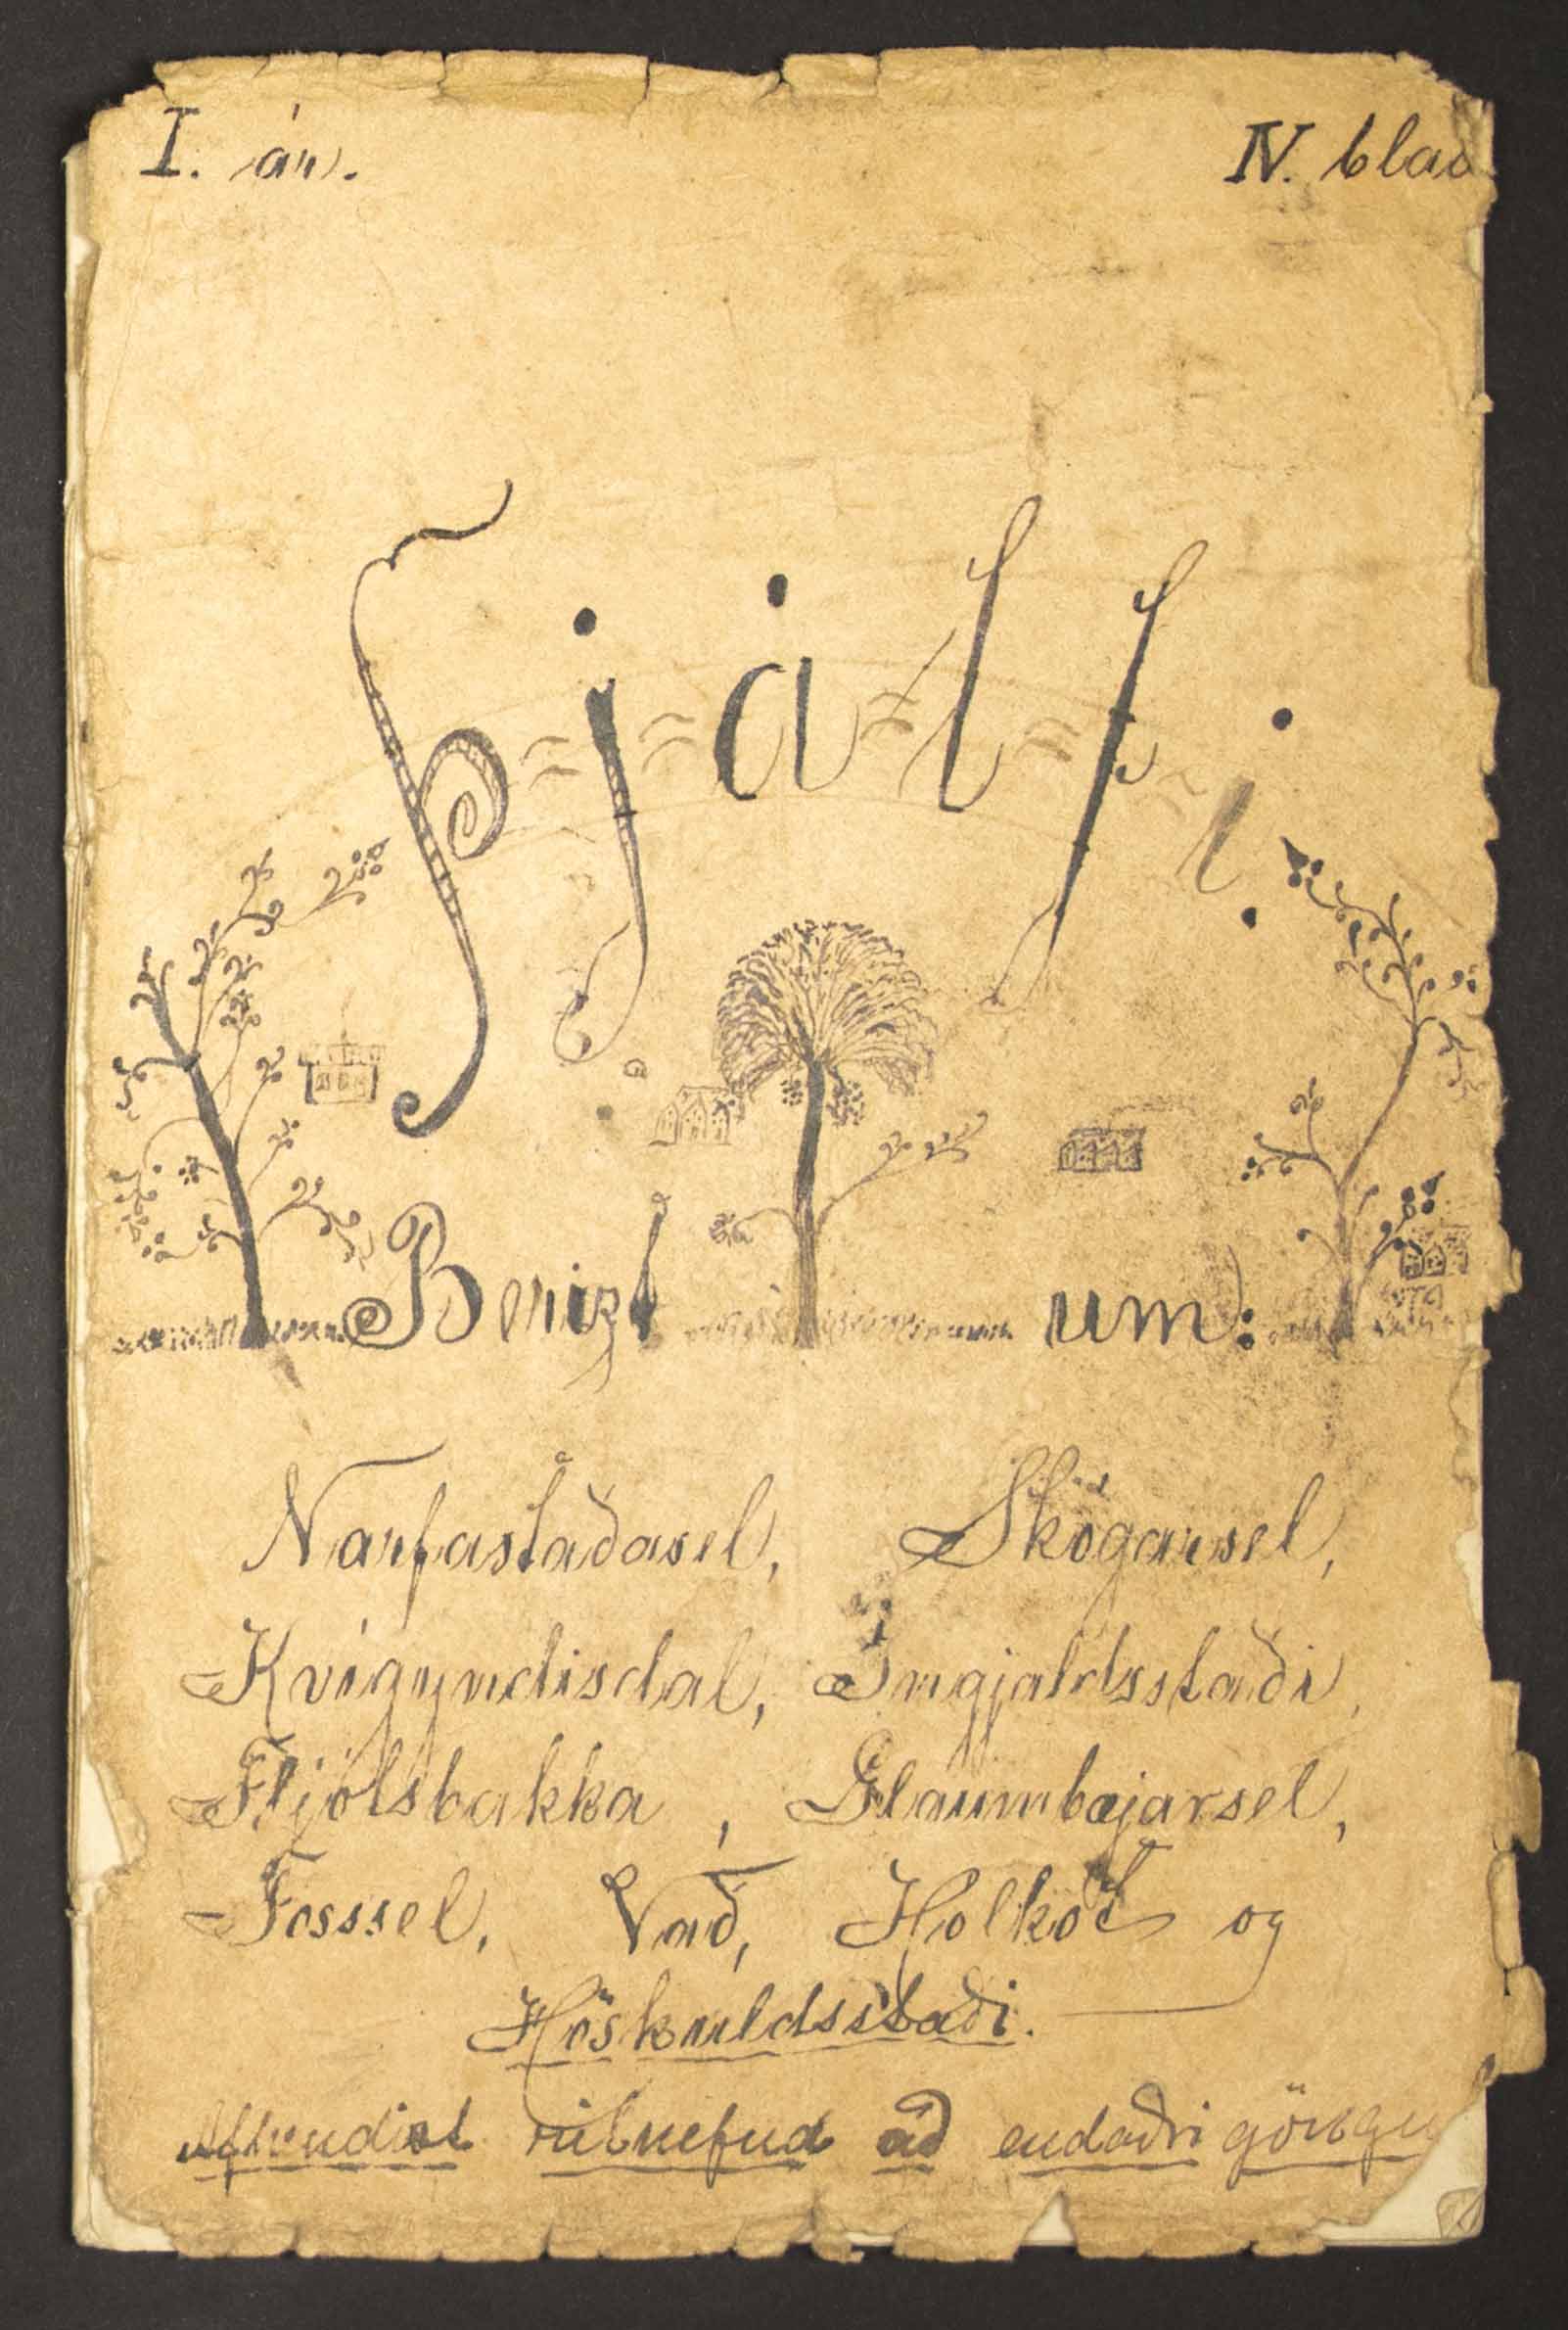 I. ár.
IV. blað
Þjálfi.
Berist um:
Narfastaðasel, Skógarsel,
Kvígyndisdal, Ingjaldsstaði,
Fljótsbakka, Glaumbæjarsel,
Fosssel, Vað, Holkot og
Höskuldsstaði.
Afhendist ritnefnd að endaðri göngu